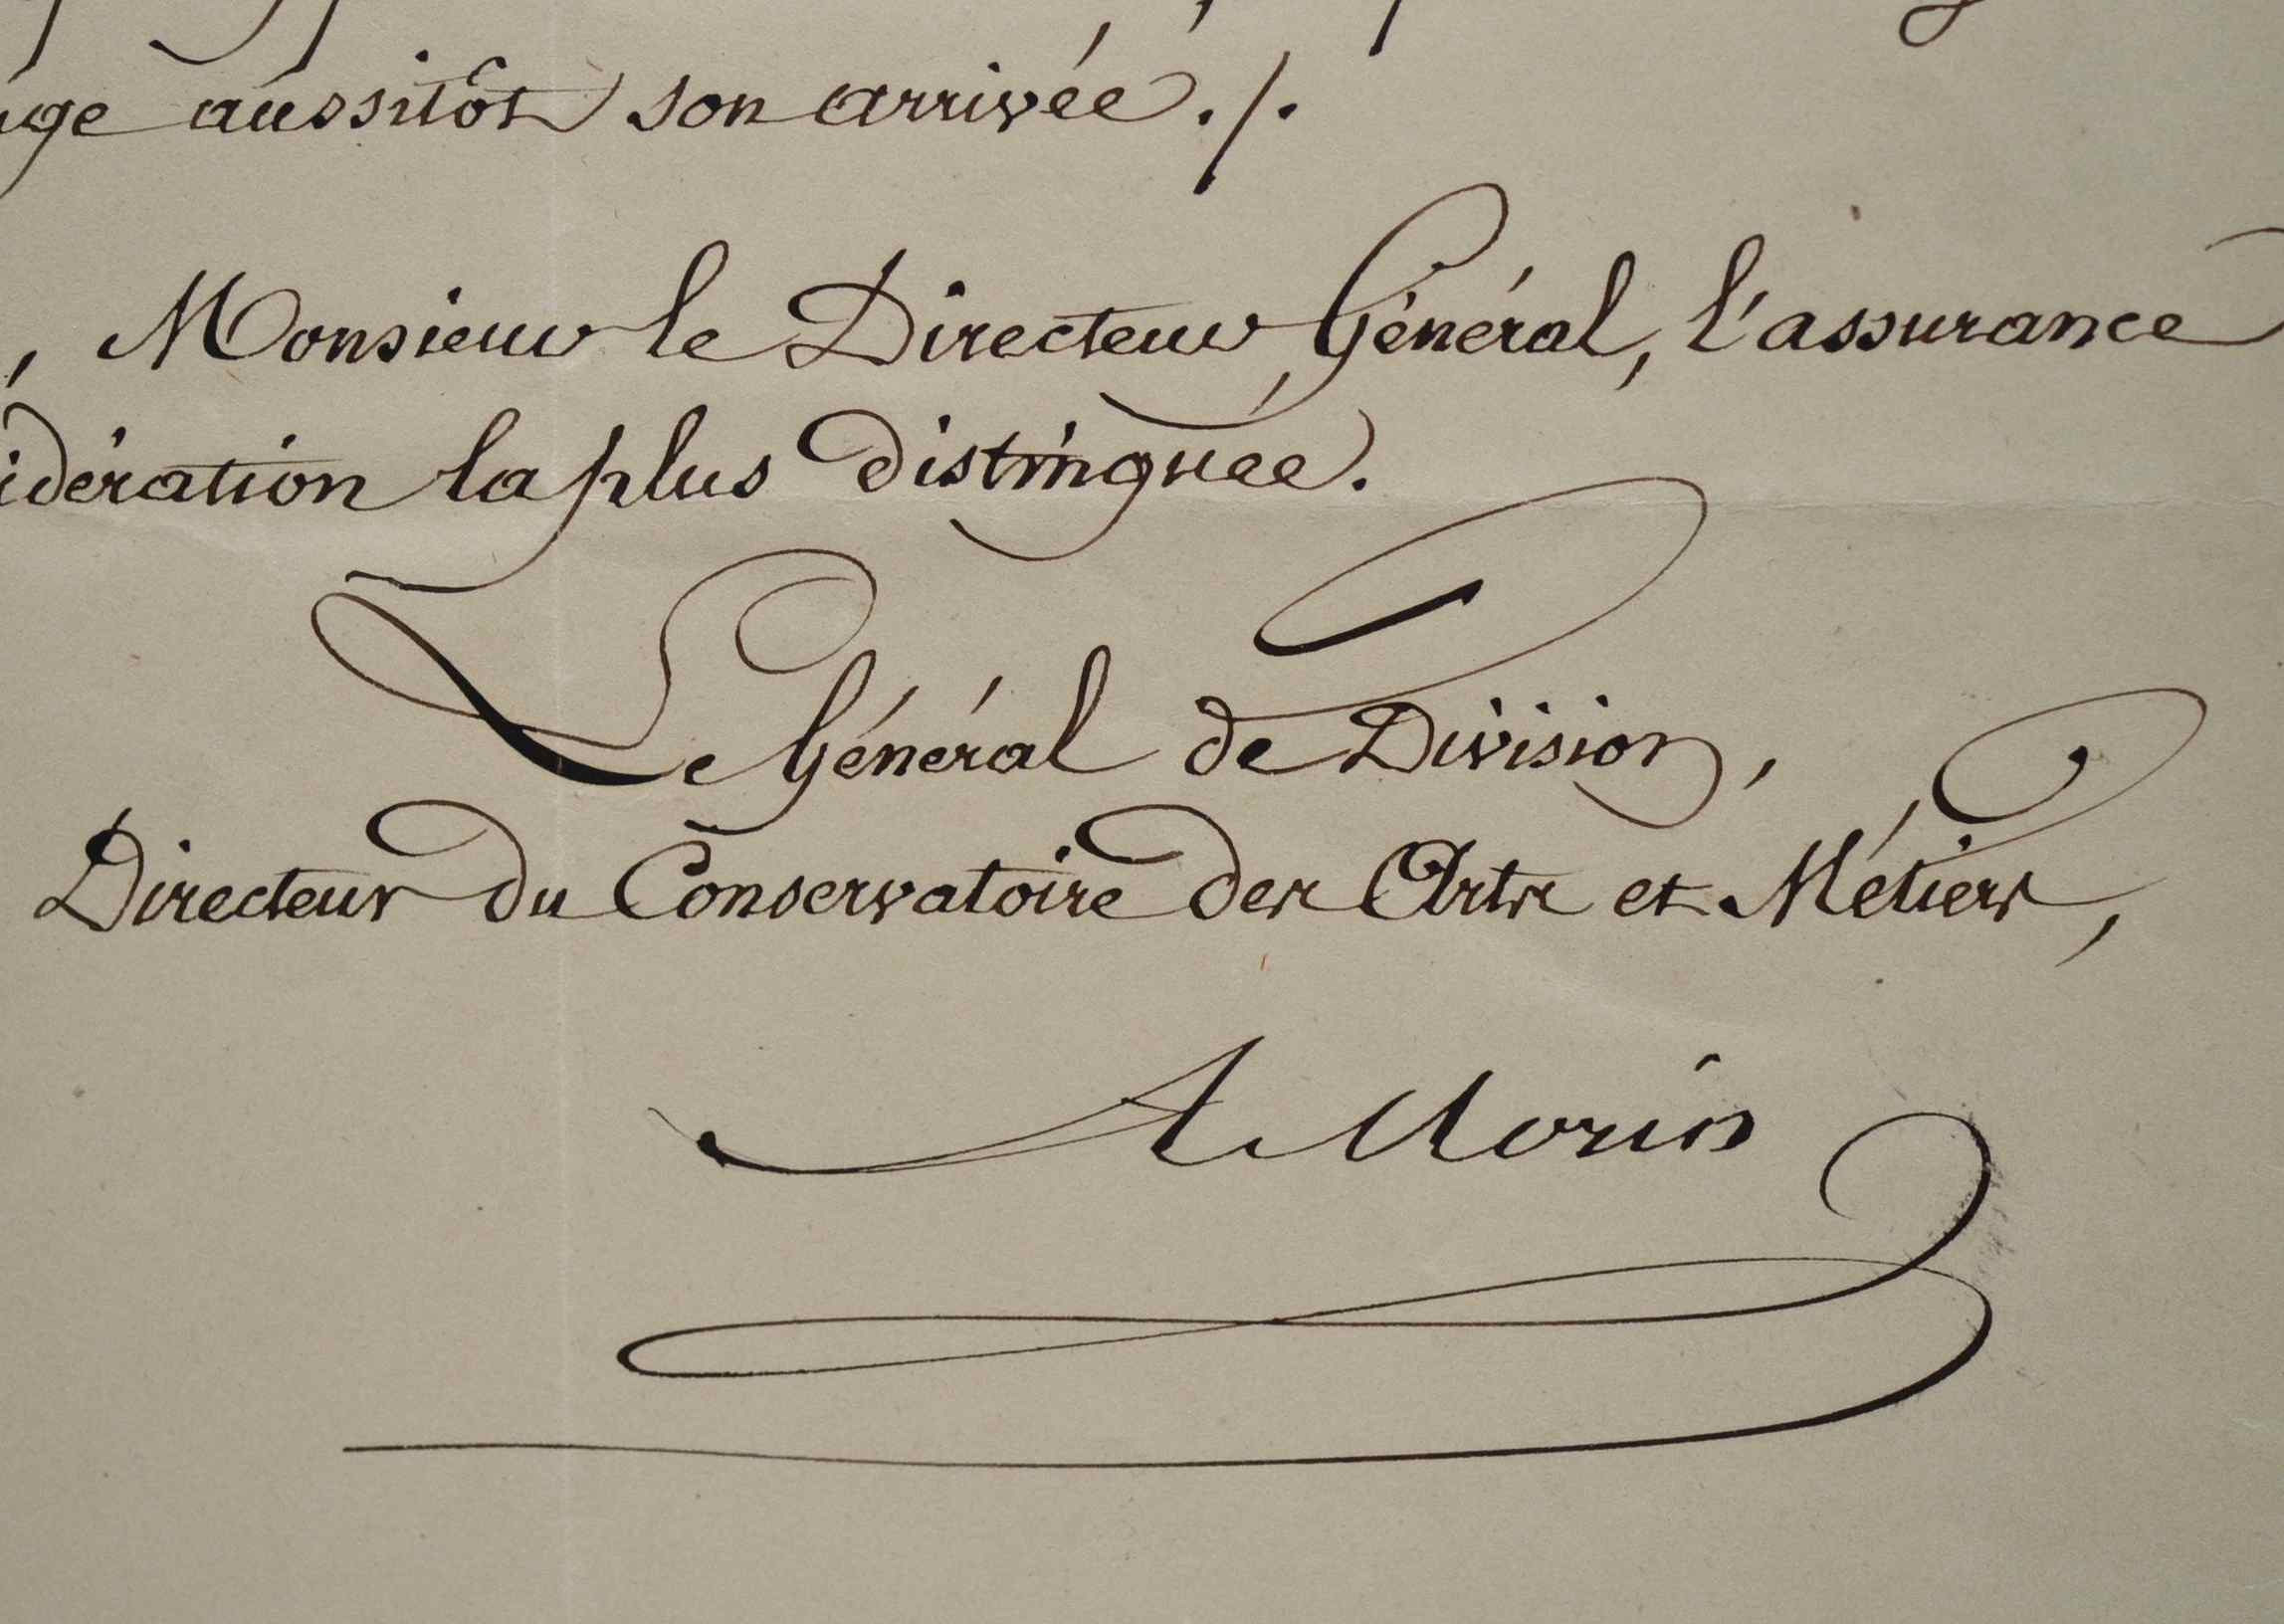 aussitôt son arrivée ./.
, Monsieur le Directeur Général, l'assurance
idération la plus distinguée.
Le Général de Division,
Directeur du Conservatoire des Arts et Métiers,
A Morin